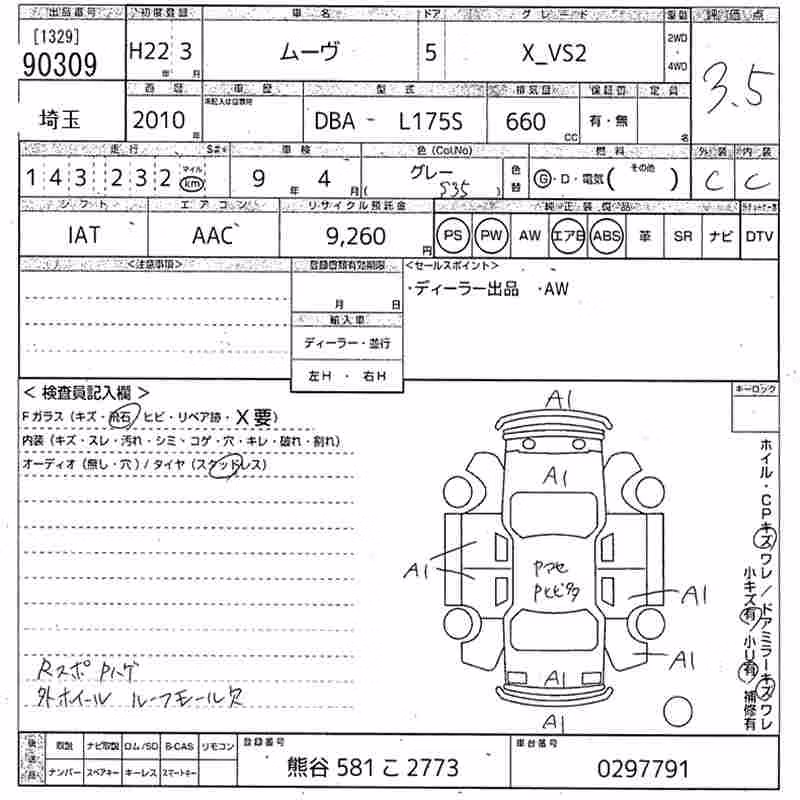 出品番号 初度登録 車名 ドア グレード 型動 評価点
[1329] 90309 H22年 3月 ムーヴ 5 X_VS2 2WD・4WD 3.5
西暦 車歴 型式 排気量 保証書 定員
埼玉 2010年 未記入は自家用 DBA - L175S 660cc 有・無 名
走行 S#* 車検 色(Col.No) 燃料 外装 内装
143,232 マイル km 9年 4月 グレー( S35 ) 色替 G・D・電気( その他 ) C C
シフト エアコン リサイクル預託金 純正装備品
IAT AAC 9,260円 PS PW AW エアB ABS 革 SR ナビ DTV
<注意事項> 登録書類有効期限 <セールスポイント>
月 日 ・ディーラー出品 ・AW
輸入車
ディーラー・並行
左H ・ 右H
< 検査員記入欄 > キーロック
Fガラス(キズ・飛石・ヒビ・リペア跡・X要)
内装(キズ・スレ・汚れ・シミ・コゲ・穴・キレ・破れ・割れ)
オーディオ(無し・穴)/タイヤ(スタッドレス)
A1
A1
A1
Pマセ
Pヒビタタ
A1
A1
A1
A1
ホイル・CPキズワレ/ドアミラーキズワレ
小キズ有/小U有/補修有
Rスポ Pハゲ
外ホイール ルーフモール欠
後送品 取説 ナビ取説 ロム/SD B-CAS リモコン 登録番号 車台番号
ナンバー スペアキー キーレス スマートキー 熊谷 581 こ 2773 0297791